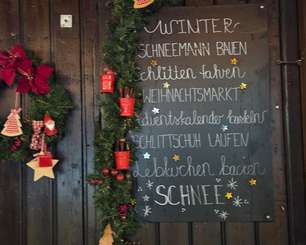 WINTER
SCHNEEMANN BAUEN
Schlitten fahren
WEIHNACHTSMARKT
Adventskalender basteln
SCHLITTSCHUH LAUFEN
Lebkuchen
SCHNEE